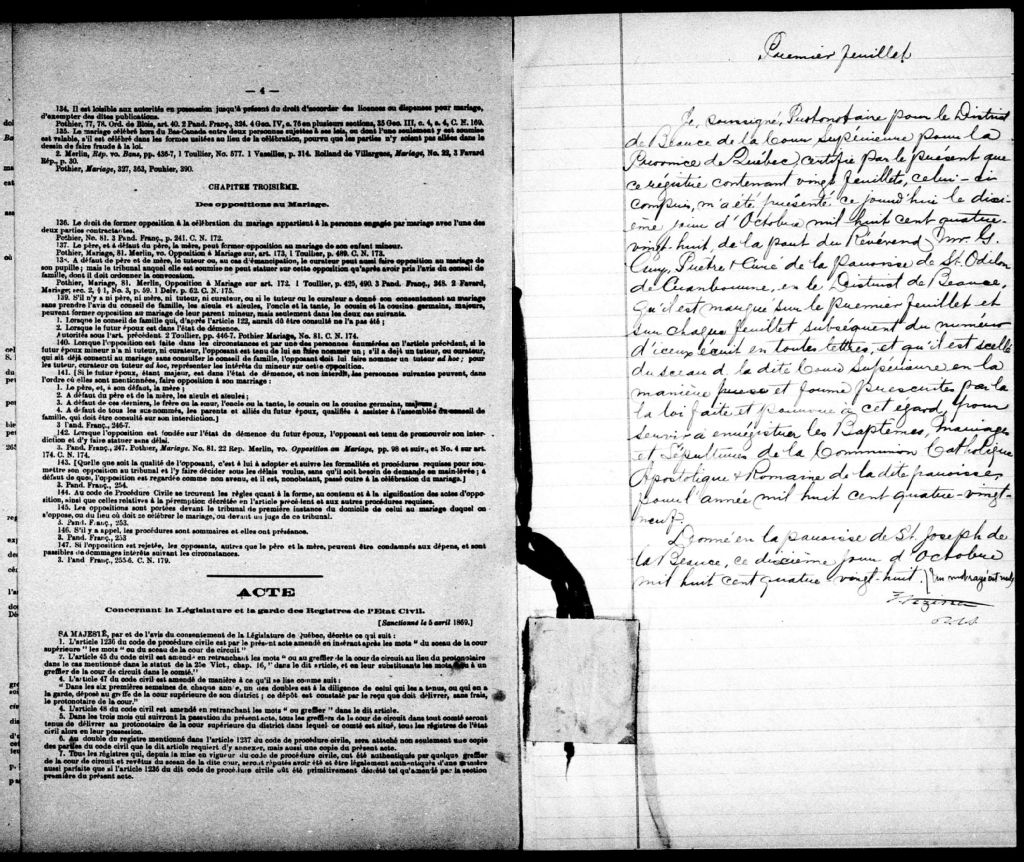 — 4 —
134. Il est loisible aux autorités en possession jusqu'à présent du droit d'accorder des licences ou dispenses pour mariage,
d'exempter des dites publications.
Pothier, 77, 78. Ord. de Blois, art. 40. 2 Pand. Franç., 324. 4 Geo. IV, c. 75 en plusieurs sections, 35 Geo. III, c. 4, s. 4, C. N. 169.
135. Le mariage célébré hors du Bas-Canada entre deux personnes sujettes à ses lois, ou dont l'une seulement y est soumise
est valable, s'il est célébré dans les formes usitées au lieu de la célébration, pourvu que les parties n'y soient pas allées dans le
dessin de faire fraude à la loi.
2. Merlin, Rép. vo. Bans, pp. 436-7, 1 Toullier, No. 577. 1 Vaseilles, p. 314. Rolland de Villargues, Mariage, No. 22, 3 Favard
Rép., p. 30.
Pothier, Mariage, 327, 363, Pouhier, 390.
CHAPITRE TROISIÈME.
Des oppositions au Mariage.
136. Le droit de former opposition à la célébration du mariage appartient à la personne engagée par mariage avec l'une des
deux parties contractantes.
Pothier, No. 81. 3 Pand. Franç., p. 241. C. N. 172.
137. Le père, et à défaut du père, la mère, peut former opposition au mariage de son enfant mineur.
Pothier, Mariage, 81. Merlin, vo. Opposition à Mariage, sur art. 173, 1 Toullier, p. 489. C. N. 173.
138. A défaut de père et de mère, le tuteur ou, au cas d'émancipation, le curateur peut aussi faire opposition au mariage de
son pupille ; mais le tribunal auquel elle est soumise ne peut statuer sur cette opposition qu'après avoir pris l'avis du conseil de
famille, dont il doit ordonner la convocation.
Pothier, Mariage, 81. Merlin, Opposition à Mariage sur art. 172. 1 Toullier, p. 425, 490. 3 Pand. Franç., 248. 2 Favard,
Mariage; sec. 2, § 1, No. 3, p. 59. 1 Delv. p. 62. C. N. 175.
139. S'il n'y a ni père, ni mère, ni tuteur, ni curateur, ou si le tuteur ou le curateur a donné son consentement au mariage
sans prendre l'avis du conseil de famille, les aïeuls et aïeules, l'oncle et la tante, le cousin et la cousine germains, majeurs,
peuvent former opposition au mariage de leur parent mineur, mais seulement dans les deux cas suivants.
1. Lorsque le conseil de famille qui, d'après l'article 122, aurait dû être consulté ne l'a pas été ;
2. Lorsque le futur époux est dans l'état de démence.
Autorités sous l'art. précédent. 2 Toullier, pp. 446-7. Pothier Mariage, No. 81. C. N. 174.
140. Lorsque l'opposition est faite dans les circonstances et par une des personnes énumérées en l'article précédent, si le
futur époux mineur n'a ni tuteur, ni curateur, l'opposant est tenu de lui en faire nommer un ; s'il a déjà un tuteur, ou curateur,
qui ait déjà consenti au mariage sans consulter le conseil de famille, l'opposant doit lui faire nommer un tuteur ad hoc ; pour
les tuteur, curateur ou tuteur ad hoc, représenter les intérêts du mineur sur cette opposition.
141. [Si le futur époux, étant majeur, est dans l'état de démence, et non interdit, les personnes suivantes peuvent, dans
l'ordre où elles sont mentionnées, faire opposition à son mariage :
1. Le père, et, à son défaut, la mère ;
2. A défaut du père et de la mère, les aïeuls et aïeules ;
3. A défaut de ces derniers, le frère ou la sœur, l'oncle ou la tante, le cousin ou la cousine germains, majeurs ;
4. A défaut de tous les sus-nommés, les parents et alliés du futur époux, qualifiés à assister à l'assemblée du conseil de
famille, qui doit être consulté sur son interdiction.]
3 Pand. Franç., 246-7.
142. Lorsque l'opposition est fondée sur l'état de démence du futur époux, l'opposant est tenu de promouvoir son inter-
diction et d'y faire statuer sans délai.
3. Pand. Franç., 247. Pothier, Mariage. No. 81. 22 Rep. Merlin, vo. Opposition au Mariage, pp. 98 et suiv., et No. 4 sur art.
174. C. N. 174.
143. [Quelle que soit la qualité de l'opposant, c'est à lui à adopter et suivre les formalités et procédures requises pour sou-
mettre son opposition au tribunal et l'y faire décider sous les délais voulus, sans qu'il soit besoin de demande en main-levée ; à
défaut de quoi, l'opposition est regardée comme non avenue, et il est, nonobstant, passé outre à la célébration du mariage.]
3. Pand. Franç., 254.
144. Au code de Procédure Civile se trouvent les règles quant à la forme, au contenu et à la signification des actes d'oppo-
sition, ainsi que celles relatives à la péremption décrétée en l'article précédent et aux autres procédures requises.
145. Les oppositions sont portées devant le tribunal de première instance du domicile de celui au mariage duquel on
s'oppose, ou du lieu où doit se célébrer le mariage, ou devant un juge de ce tribunal.
3. Pand. Franç., 253.
146. S'il y a appel, les procédures sont sommaires et elles ont préséance.
3. Pand. Franç., 253
147. Si l'opposition est rejetée, les opposants, autres que le père et la mère, peuvent être condamnés aux dépens, et sont
passibles de dommages intérêts suivant les circonstances.
3. Pand Franç., 255-6. C. N. 179.
ACTE
Concernant la Législature et la garde des Registres de l'Etat Civil.
[Sanctionné le 5 avril 1869.]
SA MAJESTÉ, par et de l'avis du consentement de la Législature de Québec, décrète ce qui suit :
1. L'article 1236 du code de procédure civile est par le présent acte amendé en insérant après les mots " du sceau de la cour
supérieure " les mots " ou du sceau de la cour de circuit "
2. L'article 45 du code civil est amendé en retranchant les mots " ou au greffier de la cour de circuit au lieu du protonotaire
dans le cas mentionné dans le statut de la 25e Vict., chap. 16," dans le dit article, et en leur substituant les mots " ou à un
greffier de la cour de circuit dans le comté."
4. L'article 47 du code civil est amendé de manière à ce qu'il se lise comme suit :
" Dans les six premières semaines de chaque année, un des doubles est à la diligence de celui qui les a tenus, ou qui en a
la garde, déposé au greffe de la cour supérieure de son district ; ce dépôt est constaté par le reçu que doit délivrer, sans frais,
le protonotaire de la cour."
4. L'article 48 du code civil est amendé en retranchant les mots " ou greffier " dans le dit article.
5. Dans les trois mois qui suivront la passation du présent acte, tous les greffiers de la cour de circuit dans tout comté seront
tenus de délivrer au protonotaire de la cour supérieure du district dans lequel ce comté est situé, tous les registres de l'état
civil alors en leur possession.
6. Au double du registre mentionné dans l'article 1237 du code de procédure civile, sera attaché non seulement une copie
des parties du code civil que le dit article requiert d'y annexer, mais aussi une copie du présent acte.
7. Tous les régistres qui, depuis la mise en vigueur du code de procédure civile, ont été authentiqués par quelque greffier
de la cour de circuit et revêtus du sceau de la dite cour, seront réputés avoir été et être légalement authentiqués d'une manière
aussi parfaite que si l'article 1236 du dit code de procédure civile eût été primitivement décrété tel qu'amendé par la section
première du présent acte.
Premier feuillet
Je, soussigné, Protonotaire pour le District
de Beauce de la Cour Supérieure pour la
Province de Québec, certifie par le présent que
ce régistre contenant vingt feuillets, celui-ci
compris, m'a été présenté ce jourd'hui le dixi-
ème jour d'Octobre mil huit cent quatre-
vingt-huit, de la part du Révérend Mr. G.
Cuny, Prêtre & Curé de la paroisse de St. Odilon
de Cranbourne, en le District de Beauce,
qu'il est marqué sur le premier feuillet et
sur chaque feuillet subséquent du numéro
d'iceux écrit en toutes lettres, et qu'il est scellé
du sceau de la dite Cour Supérieure en la
manière et forme prescrites par la
la loi faite et pourvue à cet égard, pour
servir à enrégistrer les Baptêmes, Mariages
et Sépultures de la Communion Catholique
Apostolique & Romaine de la dite paroisse
pour l'année mil huit cent quatre-vingt-
neuf.
Donné en la paroisse de St. Joseph de
la Beauce, ce dixième jour d'Octobre
mil huit cent quatre vingt-huit. (un mot rayé est nul)
Vézina
P.C.S.